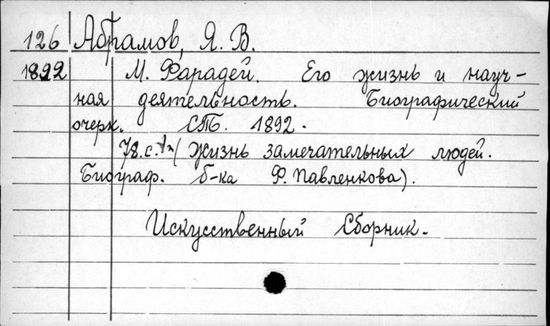 126 Абрамов, Я. В.
1892 М. Фарадей. Его жизнь и науч-
ная деятельность. Биографический
очерк. СПб. 1892.
78.с. (Жизнь замечательных людей.
Биограф. б-ка Ф. Павленкова).
Искусственный Сборник.